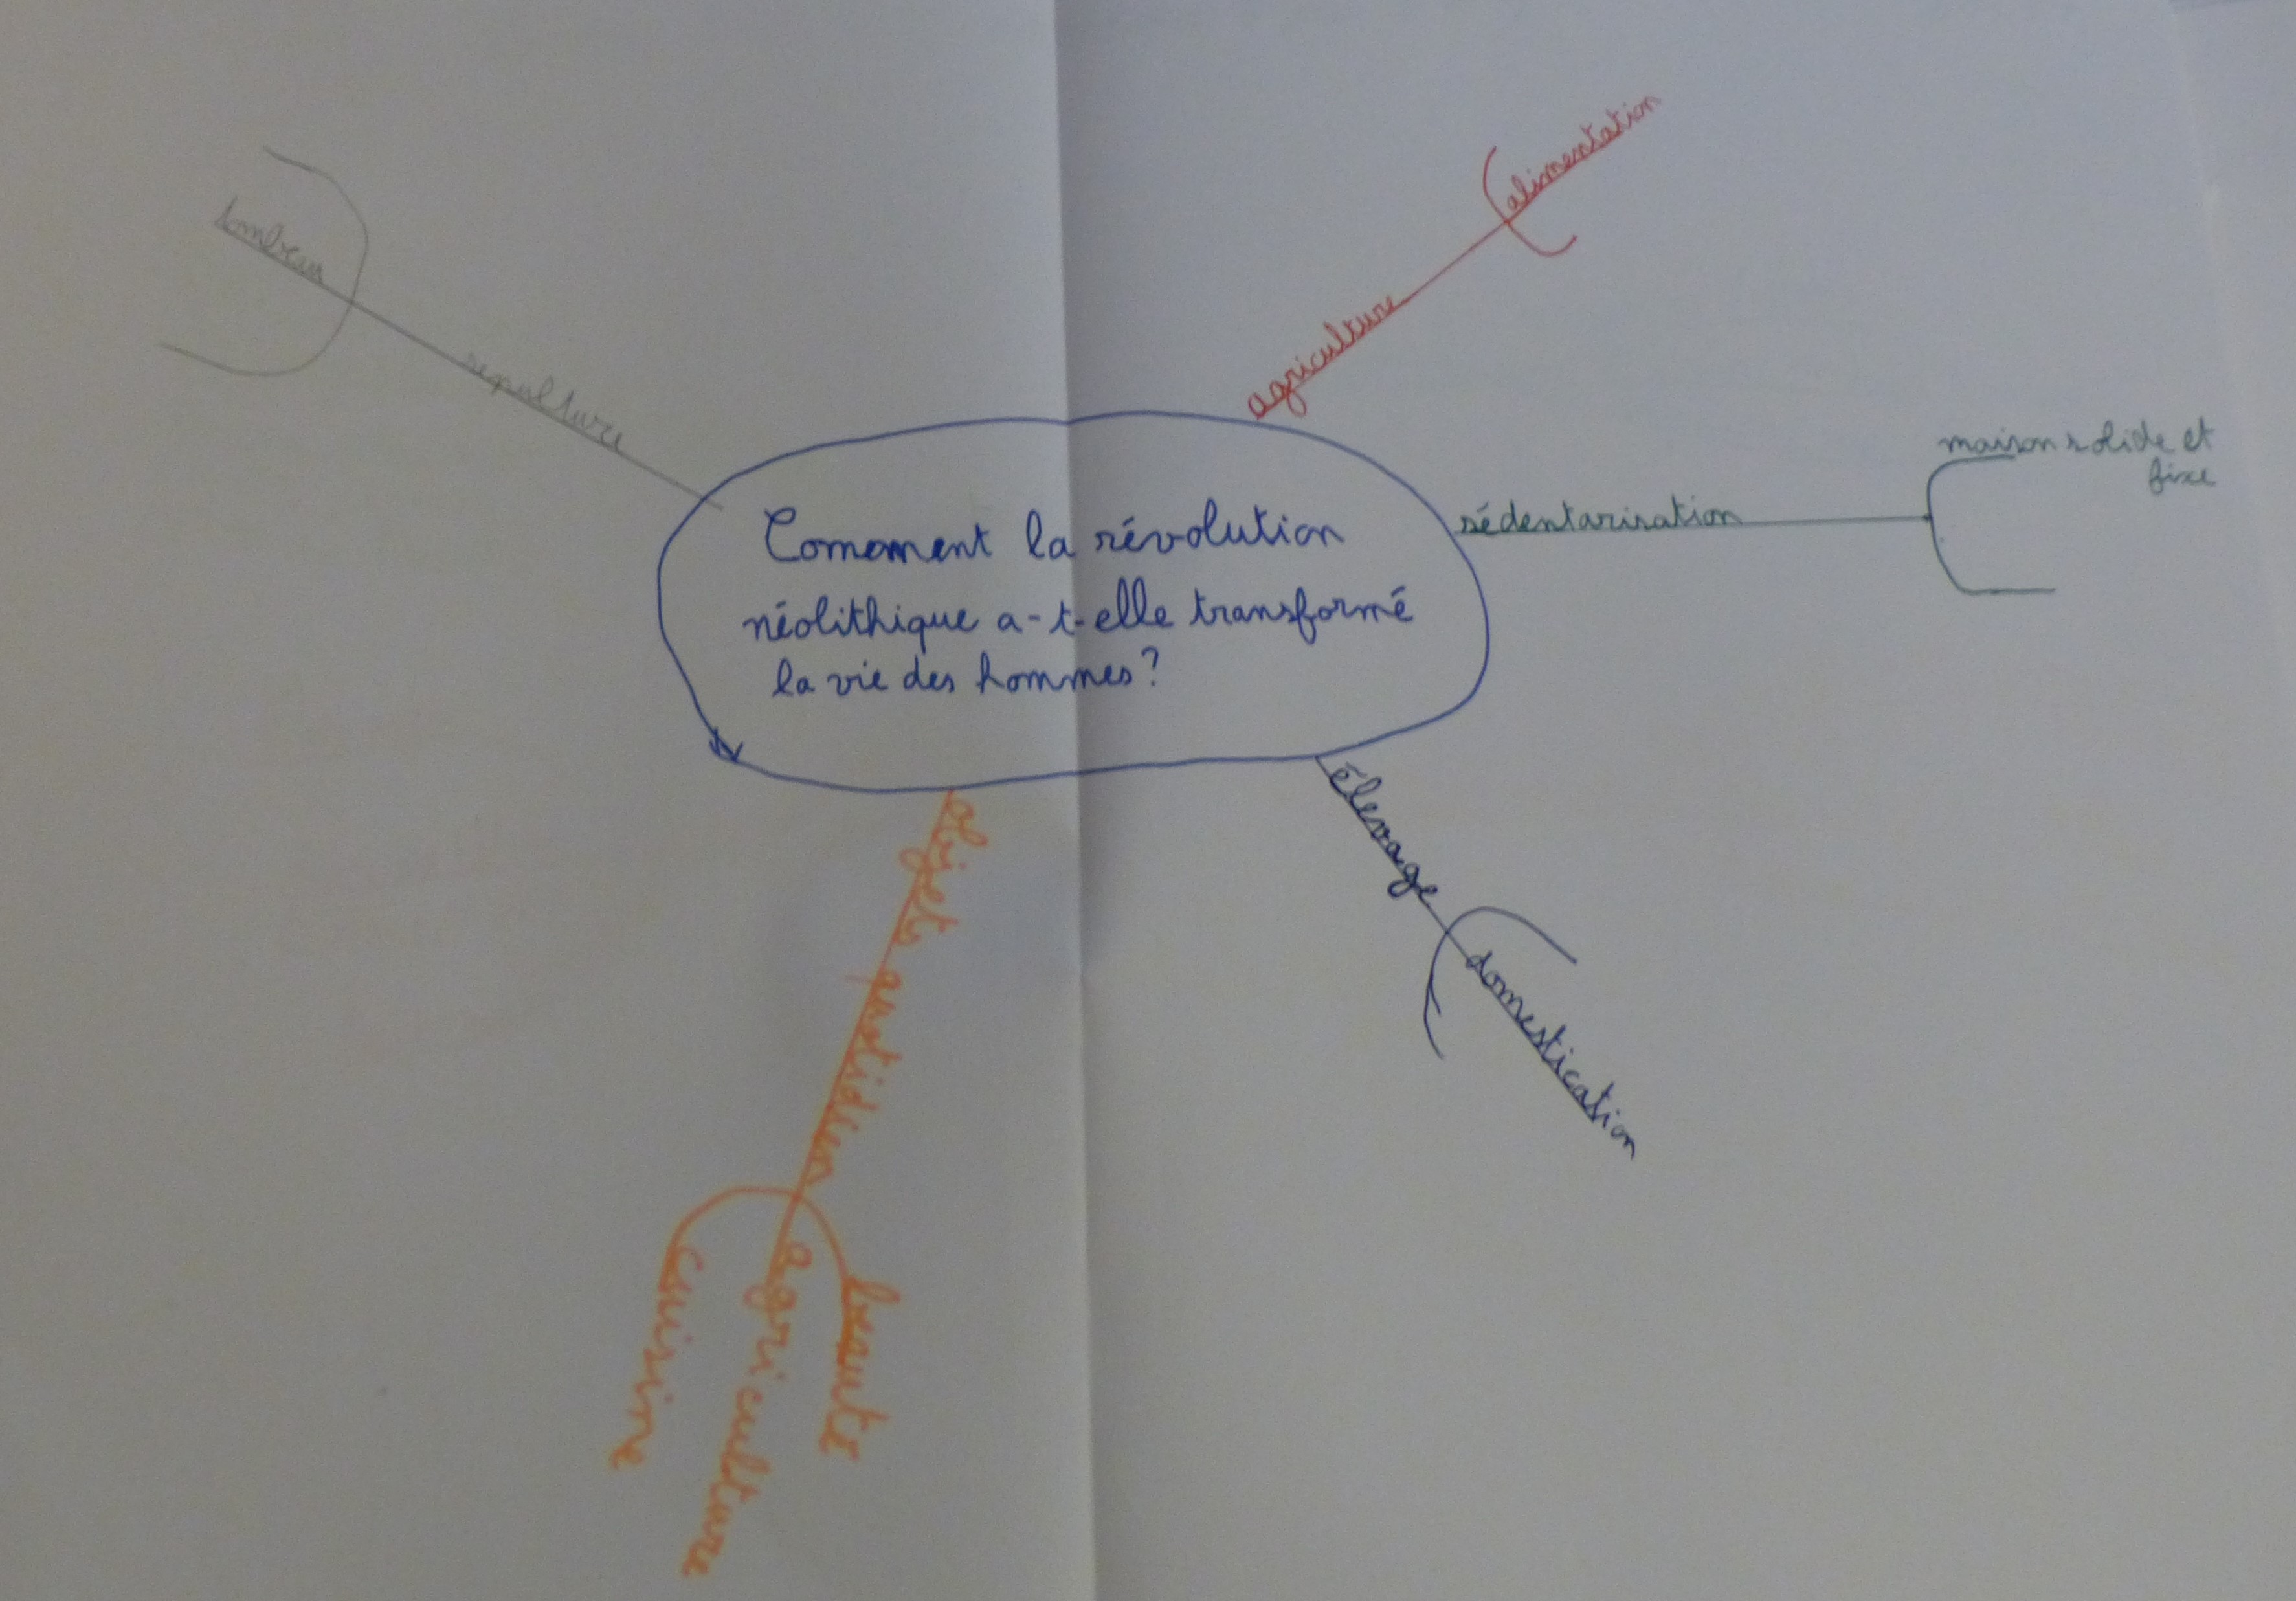 Comoment la révolution
néolithique a-t-elle transformé
la vie des hommes?
agriculture
alimentation
sédentarisation
maison solide et
fixe
élevage
domestication
objets quotidien
beauté
agriculture
cuisine
sepulture
tombeau